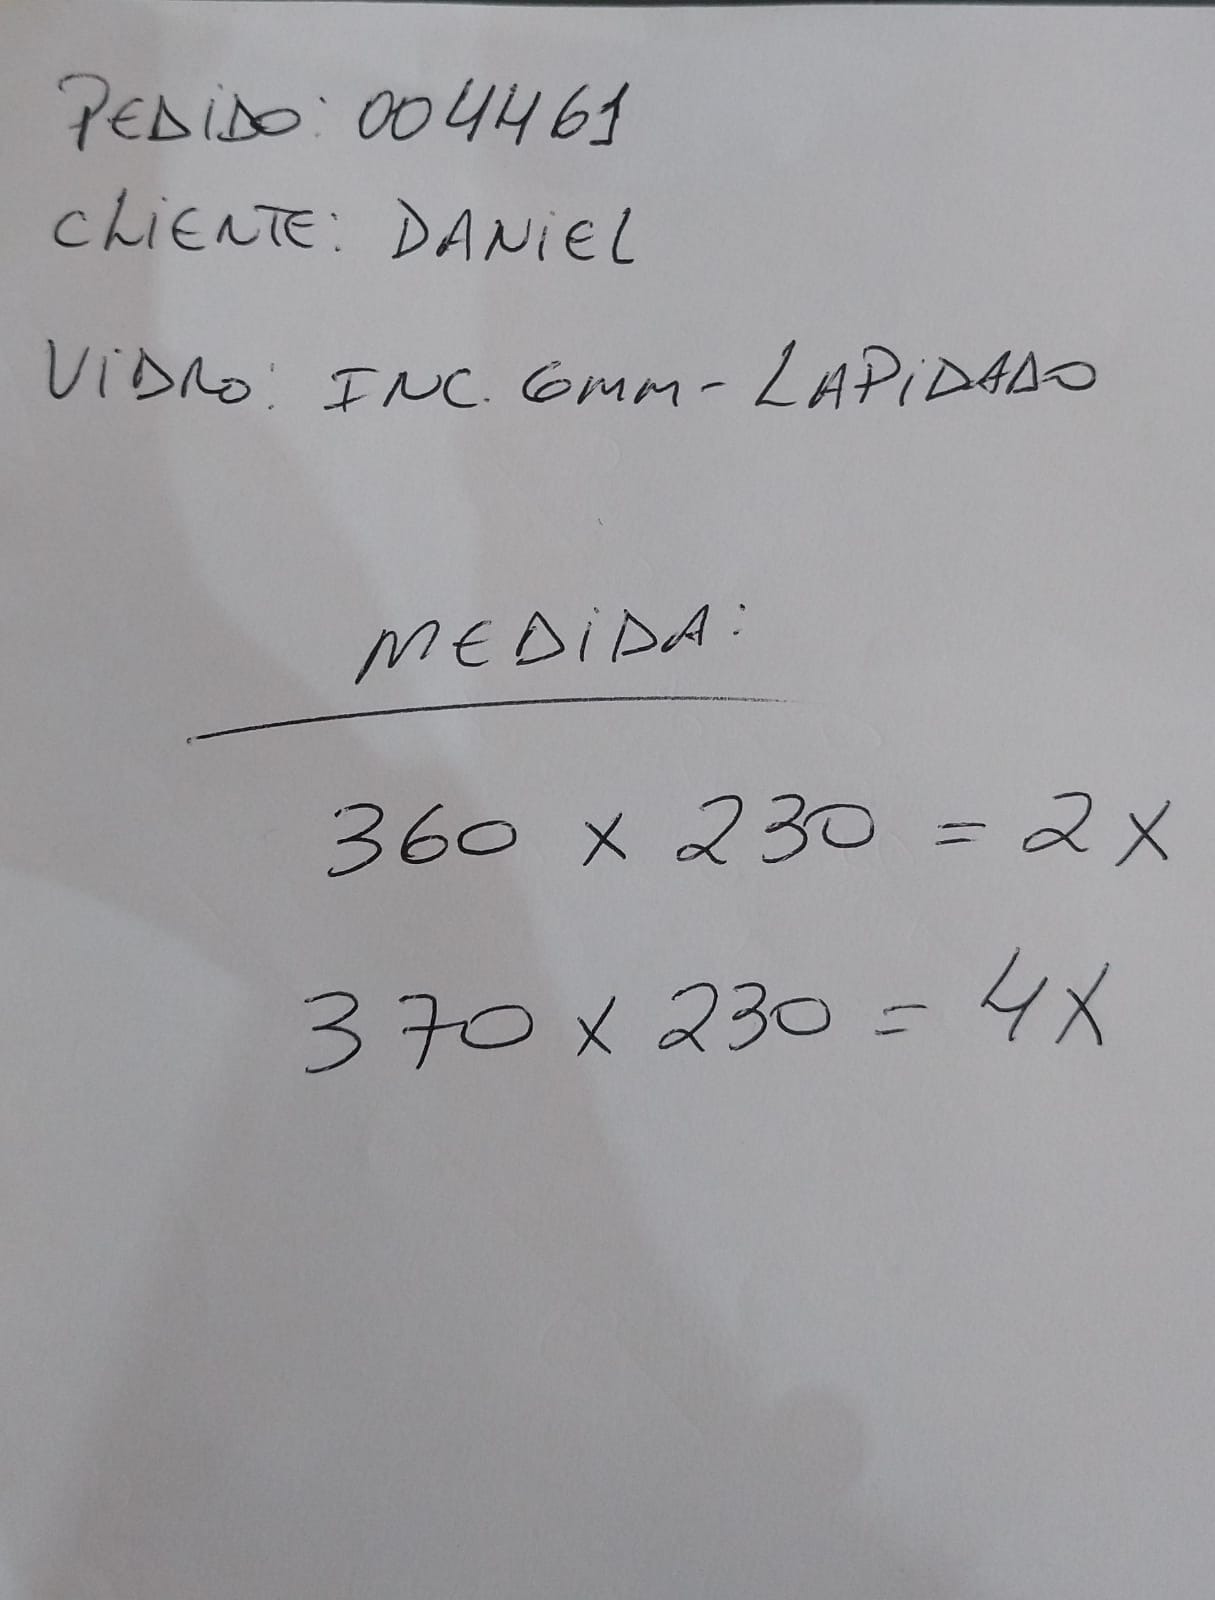 PEDIDO: 004461
CLIENTE: DANIEL
VIDRO: INC. 6mm - LAPIDADO
MEDIDA:
360 x 230 = 2x
370 x 230 = 4x